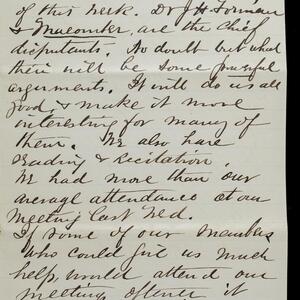 of this week. Dr J. H. Forman
& Macomber, are the Chief
disputants. No doubt but what
there will be some powerful
arguments. It will do us all
good, & make it more
interesting for many of
them. We also have
Reading & Recitation.
We had more than our
average attendance at our
Meeting last Wed.
If some of our members
who could give us much
help, would attend our
meetings oftener it